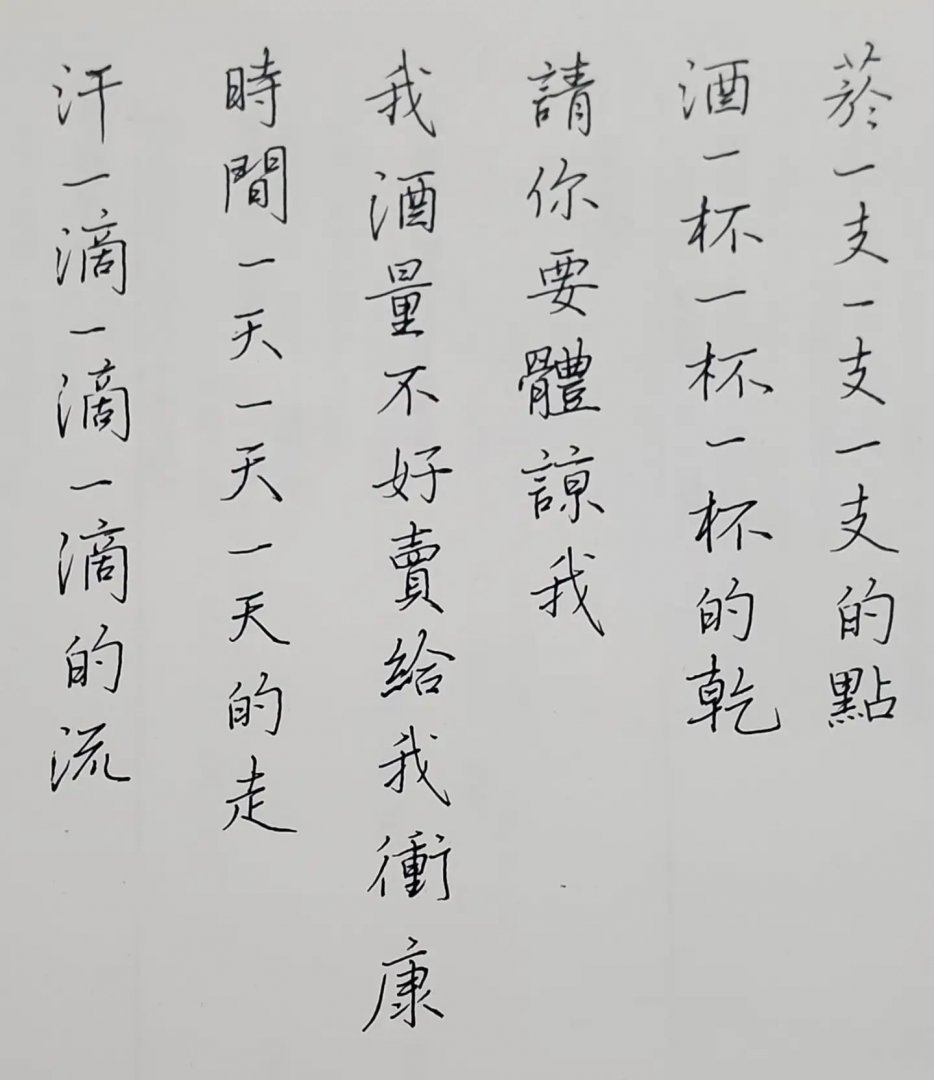 菸一支一支一支的點
酒一杯一杯一杯的乾
請你要體諒我
我酒量不好賣給我衝康
時間一天一天一天的走
汗一滴一滴一滴的流